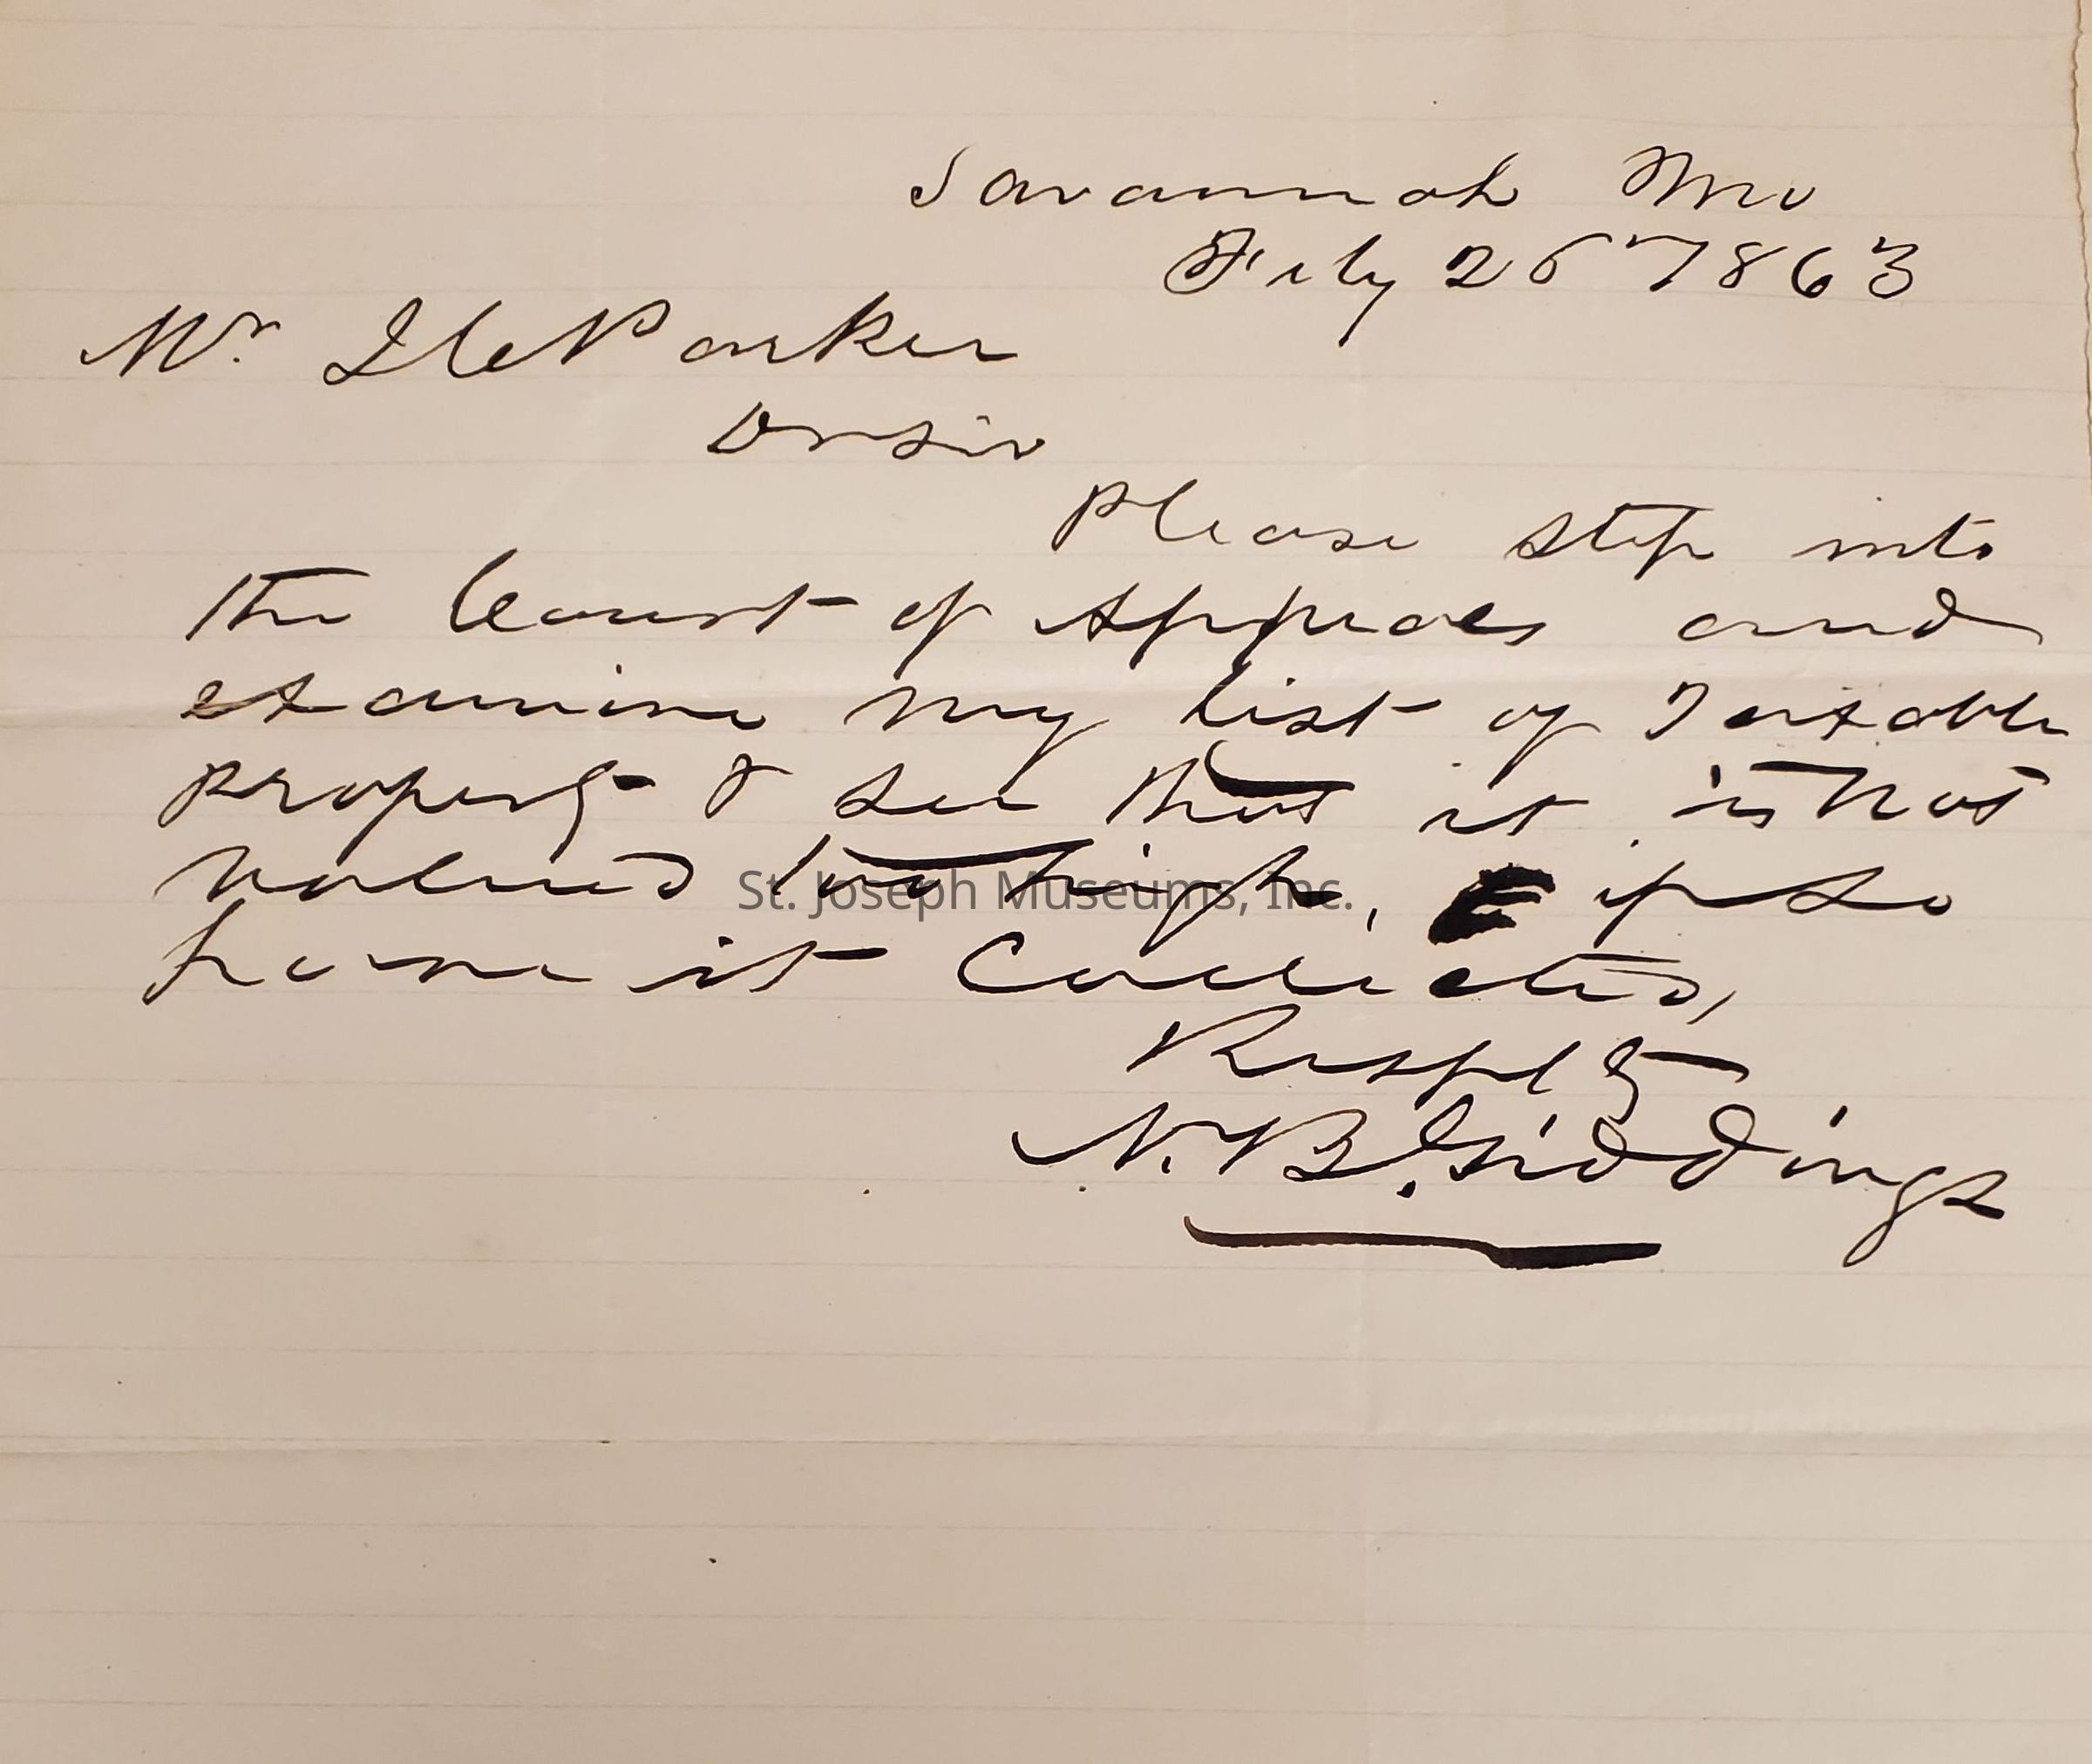 Savannah Mo
July 25 1863
Mr I C Parker
Dr Sir
Please step into
the Court of Appeals and
examine my list of Taxable
property & see that it is not
valued too high, if so
have it corrected,
Resply
N. B. Giddings
St. Joseph Museums, Inc.